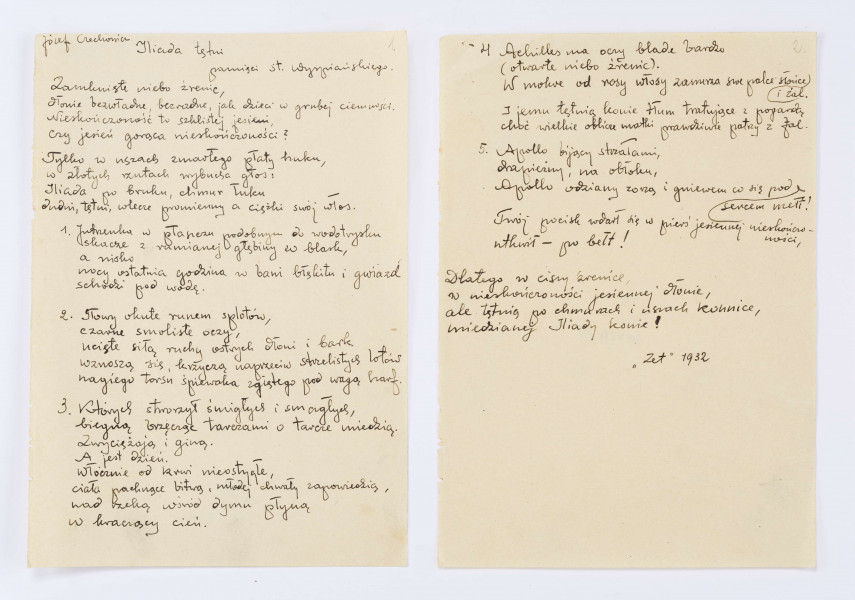 Józef Czechowicz
1
Iliada tętni
pamięci St. Wyspiańskiego.
Zamknięte niebo źrenic,
dłonie bezwładne, bezradne, jak dzieci w grubej ciemności.
Nieskończoność to szklistej jesieni,
czy jesień gorąca nieskończoności?
Tylko w uszach zmarłego płaty huku,
w złotych rzutach wybucha głos:
Iliada po bruku, chmur łuku
dudni, tętni, wlecze promienny a ciężki swój włos.
1. Jutrzenka w płaszczu podobnym do wodotrysku
skacze z rumianej głębiny w blask,
a nisko
nocy ostatnia godzina w bani błękitu i gwiazd
schodzi pod wodę.
2. Głowy okute runem splotów,
czarne smoliste oczy,
ucięte siłą ruchy ostrych dłoni i bark
wznoszą się, krzyczą naprzeciw strzelistych lotów
nagiego torsu śpiewaka zgiętego pod wagą harf.
3. Których stworzył śmigłych i smagłych,
biegną brzęcząc tarczami o tarcze miedzią.
Zwyciężają i giną.
A jest dzień.
Włócznie od krwi nieostygłe,
ciała pachnące bitwą, młodej chwały zapowiedzią,
nad rzeką wśród dymu płyną
w kraczący cień.
2.
4 Achilles ma oczy blade bardzo
(otwarte niebo źrenic).
W mokre od rosy włosy zanurza swe palce słońce
i żal.
I jemu tętnią konie tłum tratujące z pogardą
choć wielkie oblicze matki prawdziwie patrzy z fal.
5. Apollo bijący strzałami,
drapieżny, na obłoku,
Apollo odziany zorzą i gniewem co się pod
sercem mełł!
Twój pocisk wdarł się w pierś jesiennej nieskończo-
ności,
utkwił – po bełt!
Dlatego w ciszy źrenice,
w nieskończoności jesiennej dłonie,
ale tętnią po chmurach i uszach konnice,
miedzianej Iliady konie!
„Zet" 1932